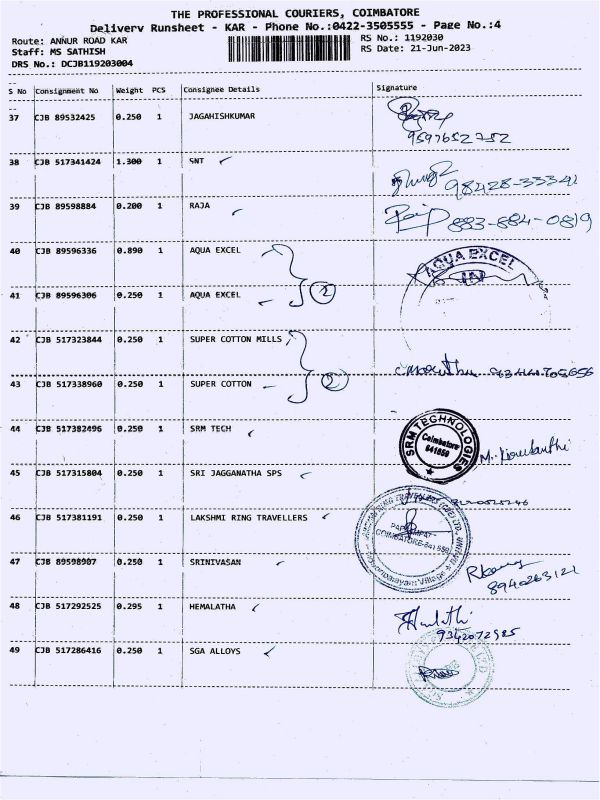 THE PROFESSIONAL COURIERS, COIMBATORE
Delivery Runsheet - KAR - Phone No.:0422-3505555 - Page No.:4
Route: ANNUR ROAD KAR RS No.: 1192030
Staff: MS SATHISH RS Date: 21-Jun-2023
DRS No.: DCJB119203004
S No Consignment No Weight PCS Consignee Details Signature
37 CJB 89532425 0.250 1 JAGAHISHKUMAR
9597652752
38 CJB 517341424 1.300 1 SNT
98428-33341
39 CJB 89598884 0.200 1 RAJA
883-884-0819
40 CJB 89596336 0.890 1 AQUA EXCEL
AQUA EXCEL
IN
41 CJB 89596306 0.250 1 AQUA EXCEL 2
42 CJB 517323844 0.250 1 SUPER COTTON MILLS
43 CJB 517338960 0.250 1 SUPER COTTON 2
44 CJB 517382496 0.250 1 SRM TECH
SRM TECHNOLOGIES
Coimbatore
641659
45 CJB 517315804 0.250 1 SRI JAGGANATHA SPS
46 CJB 517381191 0.250 1 LAKSHMI RING TRAVELLERS
COIMBATORE-641 659
47 CJB 89598907 0.250 1 SRINIVASAN
8940263121
48 CJB 517292525 0.295 1 HEMALATHA
9342072985
49 CJB 517286416 0.250 1 SGA ALLOYS